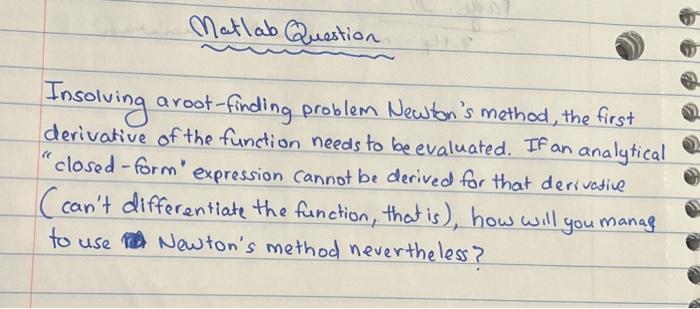 Matlab Question
Insolving a root-finding problem Newton's method, the first
derivative of the function needs to be evaluated. If an analytical
"closed-form" expression cannot be derived for that derivative
(can't differentiate the function, that is), how will you manag
to use Newton's method nevertheless?